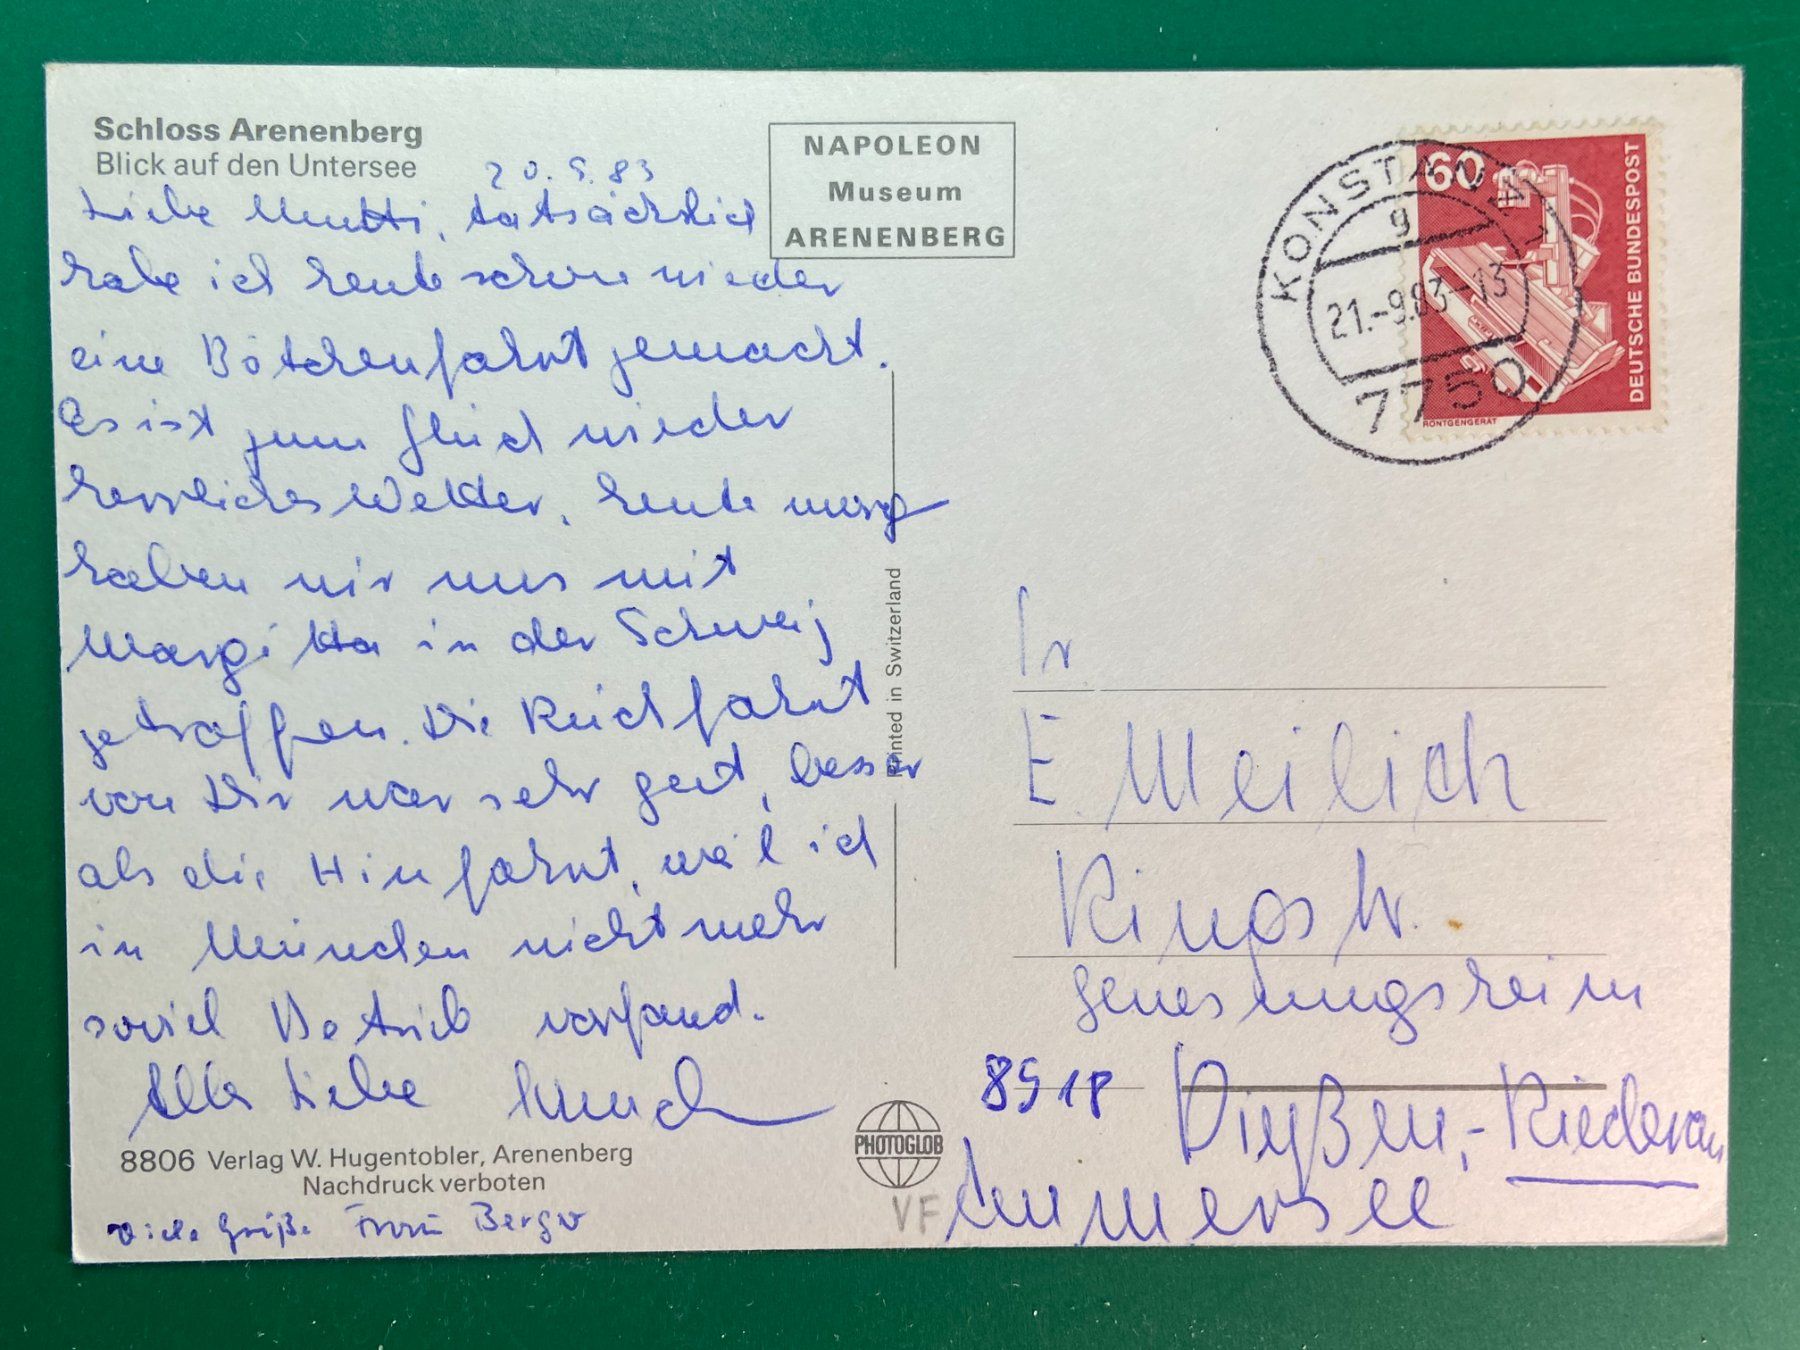 Schloss Arenenberg
Blick auf den Untersee
20.9.83
Liebe Mutti, tatsächlich
habe ich heute schon wieder
eine Bötchenfahrt gemacht.
Es ist zum Glück wieder
herrliches Wetter, heute morg
haben wir uns mit
Margitta in der Schweiz
getroffen. Die Rückfahrt
von Dir war sehr gut, besser
als die Hinfahrt, weil ich
in München nicht mehr
soviel Betrieb vorfand.
Alles Liebe
8806 Verlag W. Hugentobler, Arenenberg
Nachdruck verboten
Viele Grüße Berger
NAPOLEON
Museum
ARENENBERG
Printed in Switzerland
PHOTOGLOB
VF
KONSTANZ 1
g
21.-9.83-13
7750
60
DEUTSCHE BUNDESPOST
RÖNTGENGERÄT
Fr
E. Meilich
Ringstr.
Genesungsheim
8918 Dießen,-Riederau
Ammersee